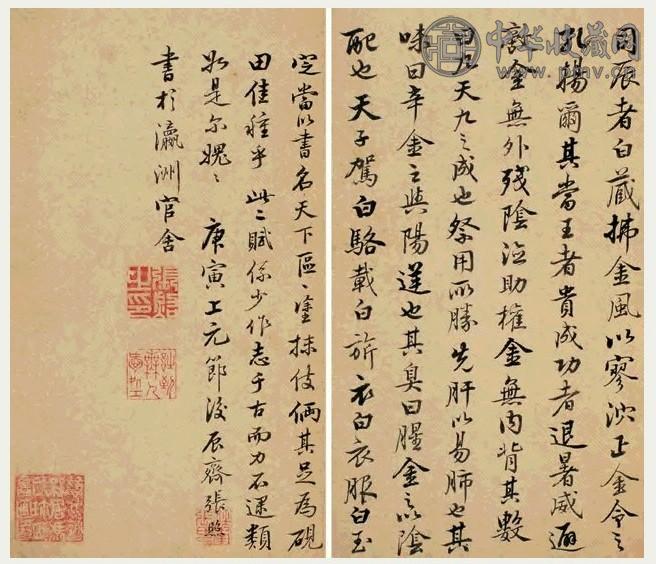 中华收藏网
www.pmv.cn
司辰者白藏拂金風以寥泬正金令之
凱揚爾其當王者貴成功者退暑威遯
金無外殘陰沴助權金無内背其數
九天九之成也祭用所勝先肝以易肺也其
味曰辛金之與陽遘也其臭曰腥金之於陰
配也天子駕白駱載白旂衣白衣服白玉
定當以書名天下區〻塗抹伎倆其足為硯
田佳種乎此二賦係少作志于古而力不逮類
如是尔愧〻庚寅上元節後辰齋張照
書於瀛洲官舍
張照之印